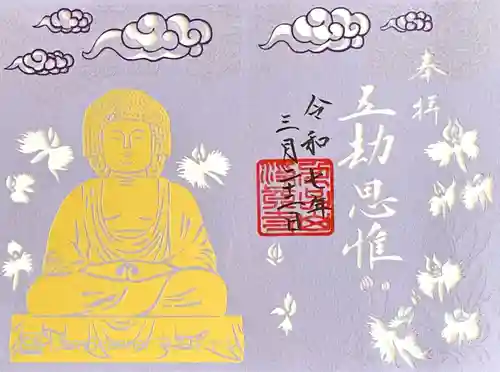 奉拝
五劫思惟
令和七年
三月二十一日